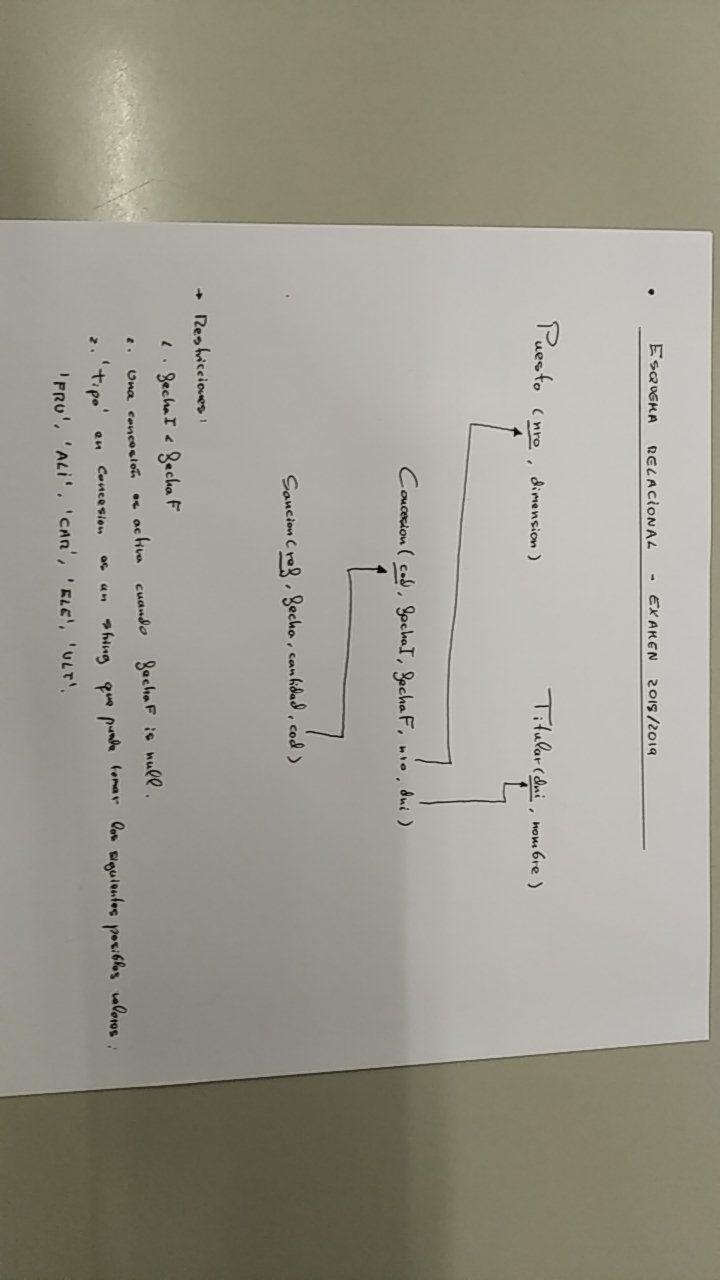 • ESQUEMA RELACIONAL - EXAMEN 2018/2019
Puesto (nro, dimension)
Titular (dni, nombre)
Concesion (cod, fechaI, fechaF, nro, dni)
Sancion (ref, fecha, cantidad, cod)
→ Restricciones:
1. fechaI < fechaF
2. Una concesión es activa cuando fechaF is null.
2. 'tipo' en concesion es un string que puede tomar los siguientes posibles valores:
'FRU', 'ALI', 'CAR', 'ELE', 'ULT'.